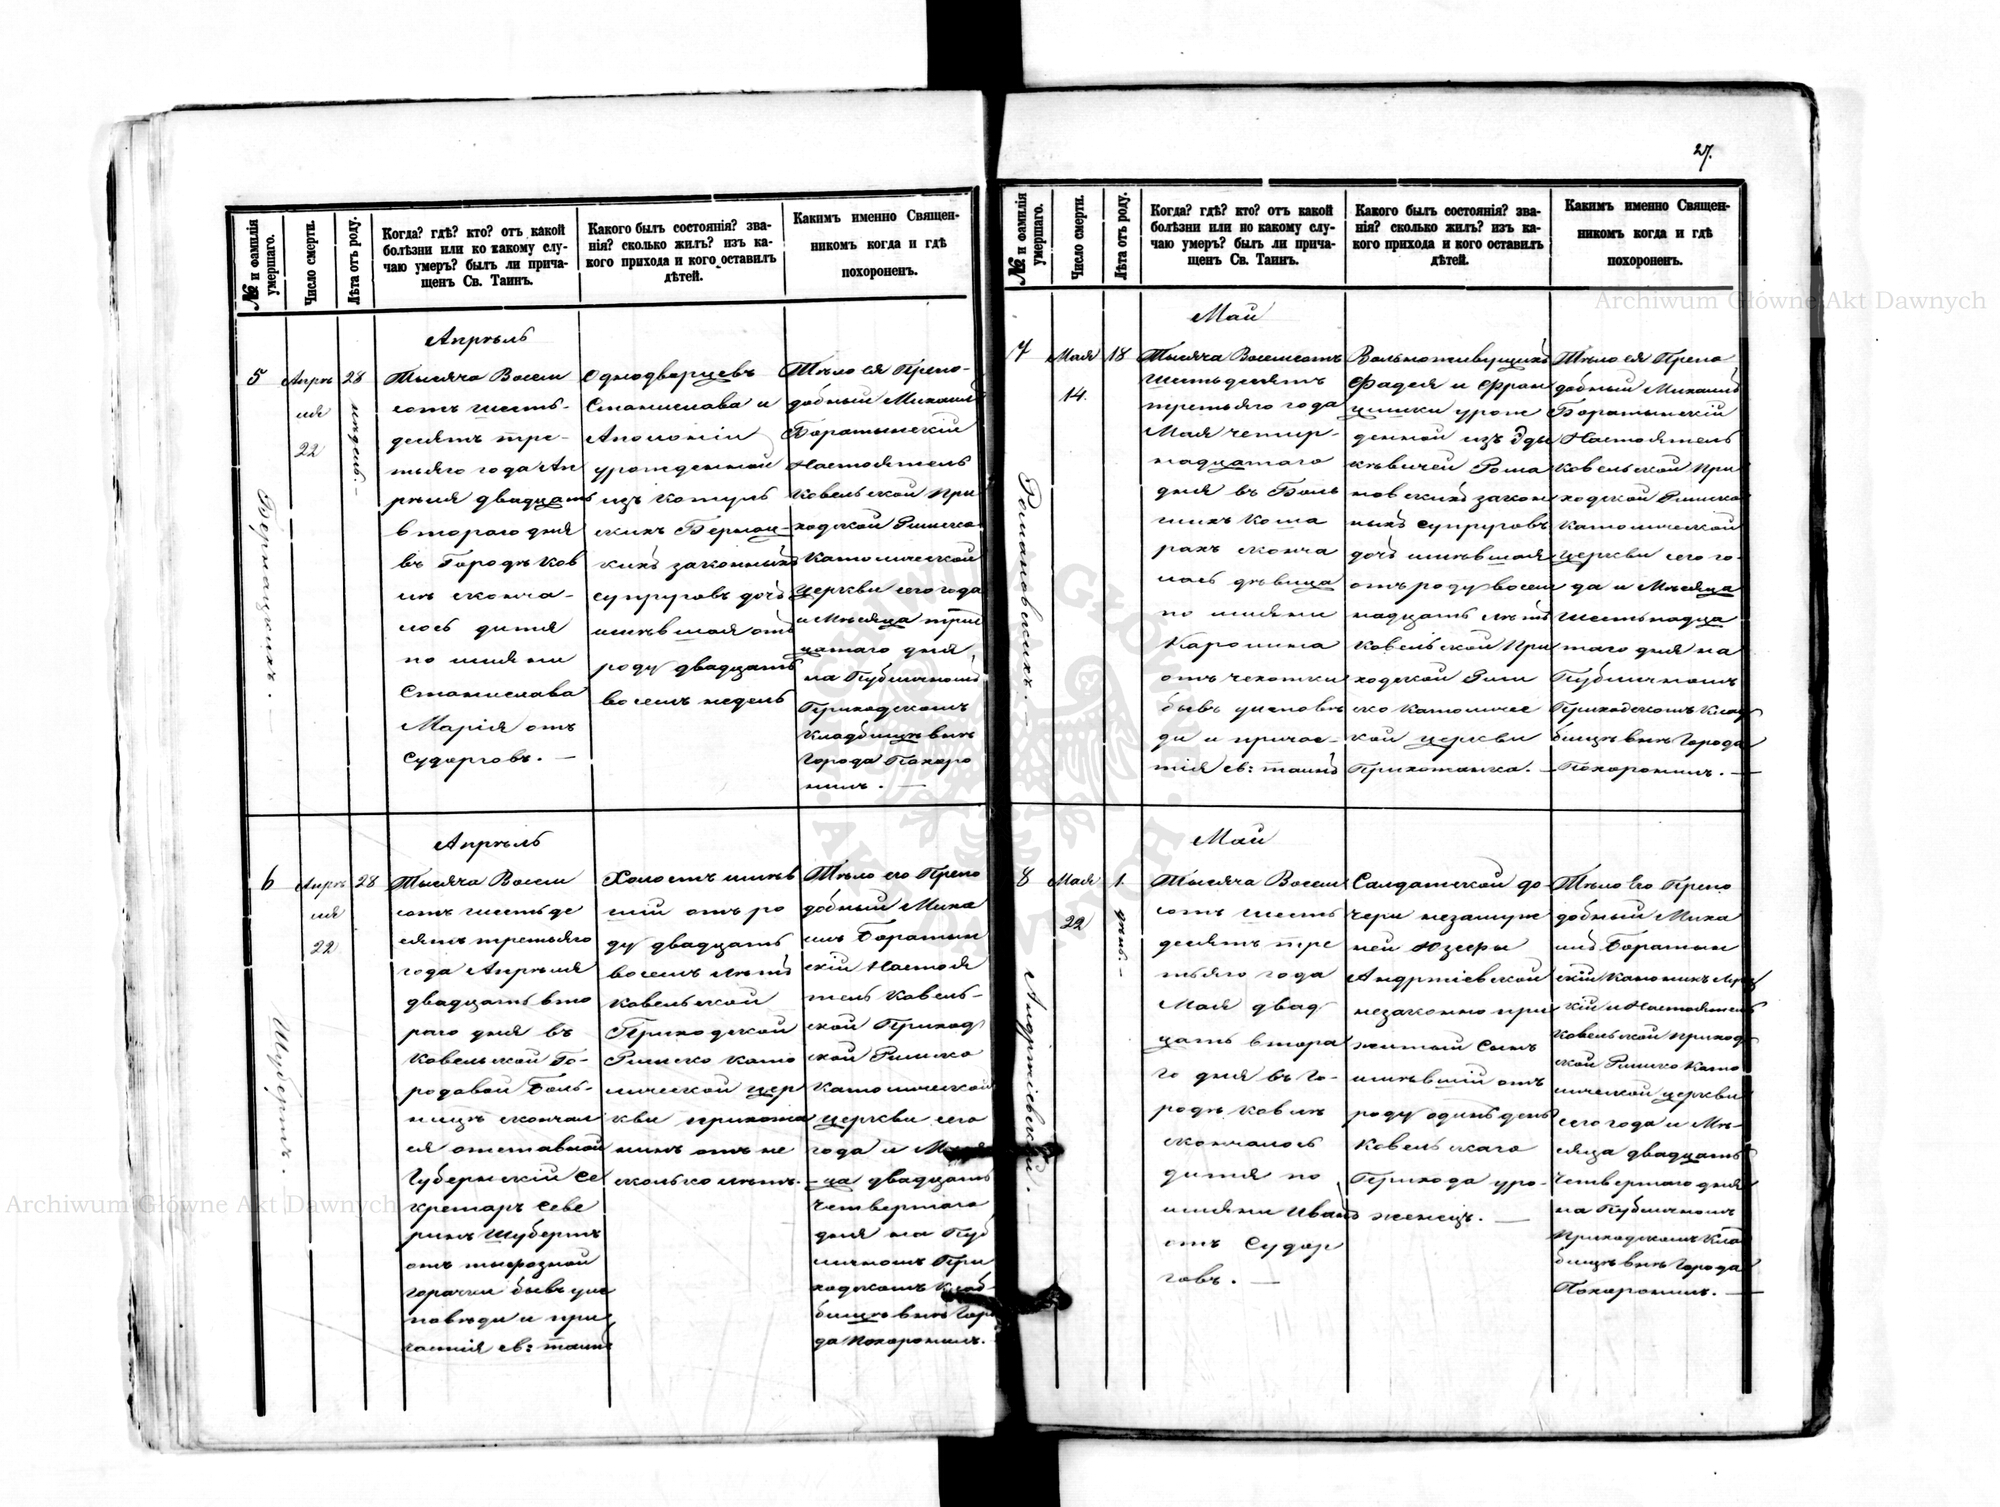 27.
№ и фамилія умершаго.
Число смерти.
Лѣта отъ роду.
Когда? гдѣ? кто? отъ какой
болѣзни или ко какому слу-
чаю умеръ? былъ ли прича-
щенъ Св. Таин.
Какого былъ состоянія? зва-
нія? сколько жилъ? изъ ка-
кого прихода и кого оставилъ
дѣтей.
Какимъ именно Священ-
никомъ когда и гдѣ
похороненъ.
5
Бермацкихъ.
Апрѣ
ля
22
28
недель.
Апрѣль
Тысяча Восем
сотъ шесть-
десятъ тре-
тьяго года Ап
рѣля двадцать
втораго дня
въ Городѣ Ков
лѣ сконча-
лось дитя
по имени
Станислава
Марія отъ
Судорговъ.
Однодворцевъ
Станислава и
Аполоніи
урожденной
изъ
Бермац-
кихъ законныхъ
супруговъ дочь
имѣвшая отъ
роду двадцать
восемь недель
Тѣло ея Препо-
добный Михаилъ
Боратынскій
Настоятель
Ковельской При
ходской Римско
Католической
церкви сего года
и Мѣсяца трид
цатаго дня
на Публичномъ
Приходскомъ
Кладбищѣ внѣ
Города Похоро
нилъ.
6
Шубертъ.
Апрѣ
ля
22
28
Апрѣль
Тысяча Восем
сотъ шестьде
сятъ третьяго
года Апрѣля
двадцать вто
раго дня въ
Ковельской Го-
родовой Боль-
ницѣ скончал
ся отставной
Губернскій Се
кретарь Севе
ринъ Шубертъ
отъ тифозной
горячки бывъ у испо
повѣди и при
частія св: таинъ
Холостъ имѣв
шій отъ ро
ду двадцать
восемь лѣтъ
Ковельской
Приходской
Римско като
лической цер
кви прихожа
нинъ отъ не
сколько лѣтъ.
Тѣло его Препо
добный Миха
илъ Боратын
скій Настоя
тель Ковель-
ской Приход
ской Римско
Католической
церкви сего
года и Мѣся
ца двадцать
Четвертаго
дня на Пуб
личномъ При
ходскомъ Клад-
бищѣ внѣ Горо
да Похоронилъ.
№ и фамилія умершаго.
Число смерти.
Лѣта отъ роду.
Когда? гдѣ? кто? отъ какой
болѣзни или по какому слу-
чаю умеръ? былъ ли прича-
щенъ Св. Таин.
Какого былъ состоянія? зва-
нія? сколько жилъ? изъ ка-
кого прихода и кого оставилъ
дѣтей.
Какимъ именно Священ-
никомъ когда и гдѣ
похороненъ.
7
Романовскихъ.
Мая
14.
18
Май
Тысяча Восемсотъ
Шестьдесятъ
третьяго года
Мая четыр-
надцатаго
дня въ Боль
шихъ Коша
рахъ сконча
лась дѣвица
по имени
Каролина
отъ чехотки
бывъ у исповѣ
ди и причас-
тія св: таинъ
Вольноживущихъ
Фадея и Фран
цишки урож
денной изъ
Рома
новскихъ закон
ныхъ супруговъ
дочь имѣвшая
отъ роду восем
надцать лѣтъ
Ковельской При
ходской Рим
ско католичес
кой церкви
Прихожанка.
Тѣло ея Препо
добный Михаилъ
Боратынскій
Настоятель
Ковельской При
ходской Римско
Католической
церкви сего го-
да и Мѣсяца
шестьнадца
таго дня на
Публичномъ
Приходскомъ Клад
бищѣ внѣ Города
Похоронилъ.
8
Мая
22
1.
день.
Май
Тысяча Восем
сотъ шесть
десятъ тре
тьяго года
Мая двад
цать втора
го дня въ Го-
родѣ Ковлѣ
скончалось
дитя по
имени Иванъ
отъ Судор
говъ.
Салдатской до
чери незамуж
ней Юзефы
незаконно при
житый Сынъ
имѣвшій отъ
роду одинъ день
Ковельскаго
Прихода уро-
женецъ.
Тѣло Его Препо
добный Миха
илъ Боратын
скій Каноникъ Луц
кій и Настоятель
Ковельской Приход
ской Римско Като
лической церкви
сего года и Мѣ-
сяца двадцать
Четвертаго дня
на Публичномъ
Приходскомъ Клад
бищѣ внѣ Города
Похоронилъ.
Archiwum Główne Akt Dawnych
Archiwum Główne Akt Dawnych